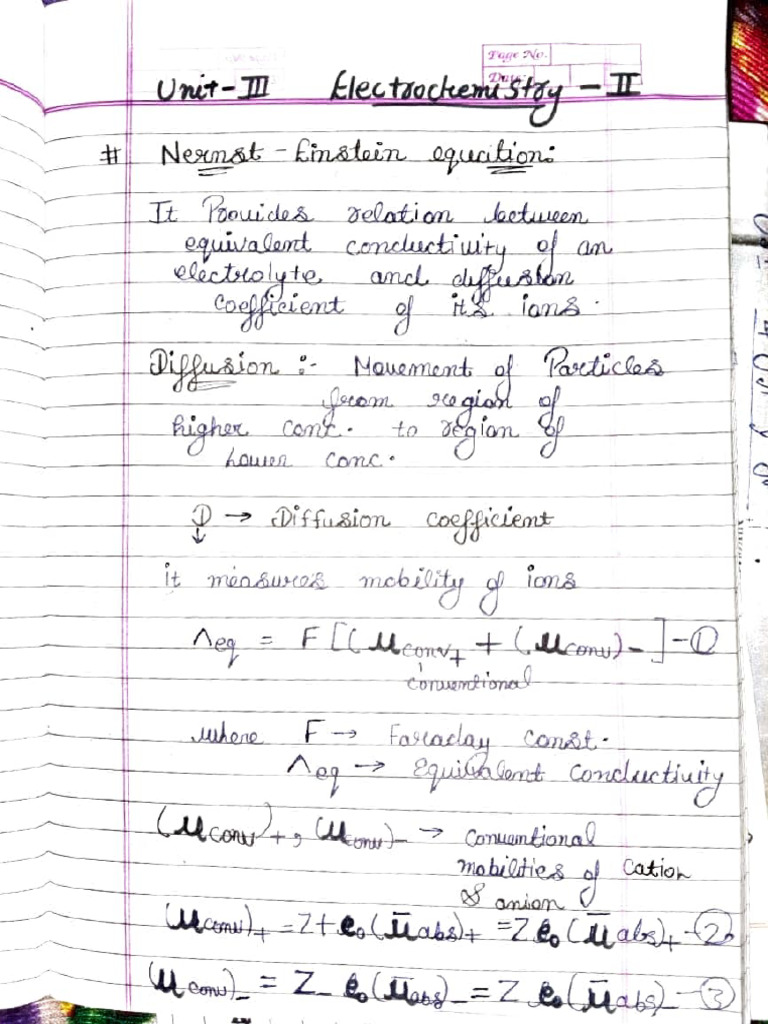 Page No.
Date
Unit-III Electrochemistry-II
# Nernst-Einstein equation:
It Provides relation between
equivalent conductivity of an
electrolyte and diffusion
coefficient of its ions.
Diffusion :- Movement of Particles
from region of
higher conc. to region of
Lower conc.
D → Diffusion coefficient
↓
it measures mobility of ions
Λeq = F[(μconv+ + (μconv)-] -①
conventional
where F → Faraday const.
Λeq → Equivalent Conductivity
(μconv)+, (μconv)- → Conventional
mobilities of Cation
& anion
(μconv)+ = Z+ e₀(μ̄abs)+ = Z e₀(μ̄abs)+ -②
(μconv)- = Z- e₀(μ̄abs)- = Z e₀(μ̄abs)- -③